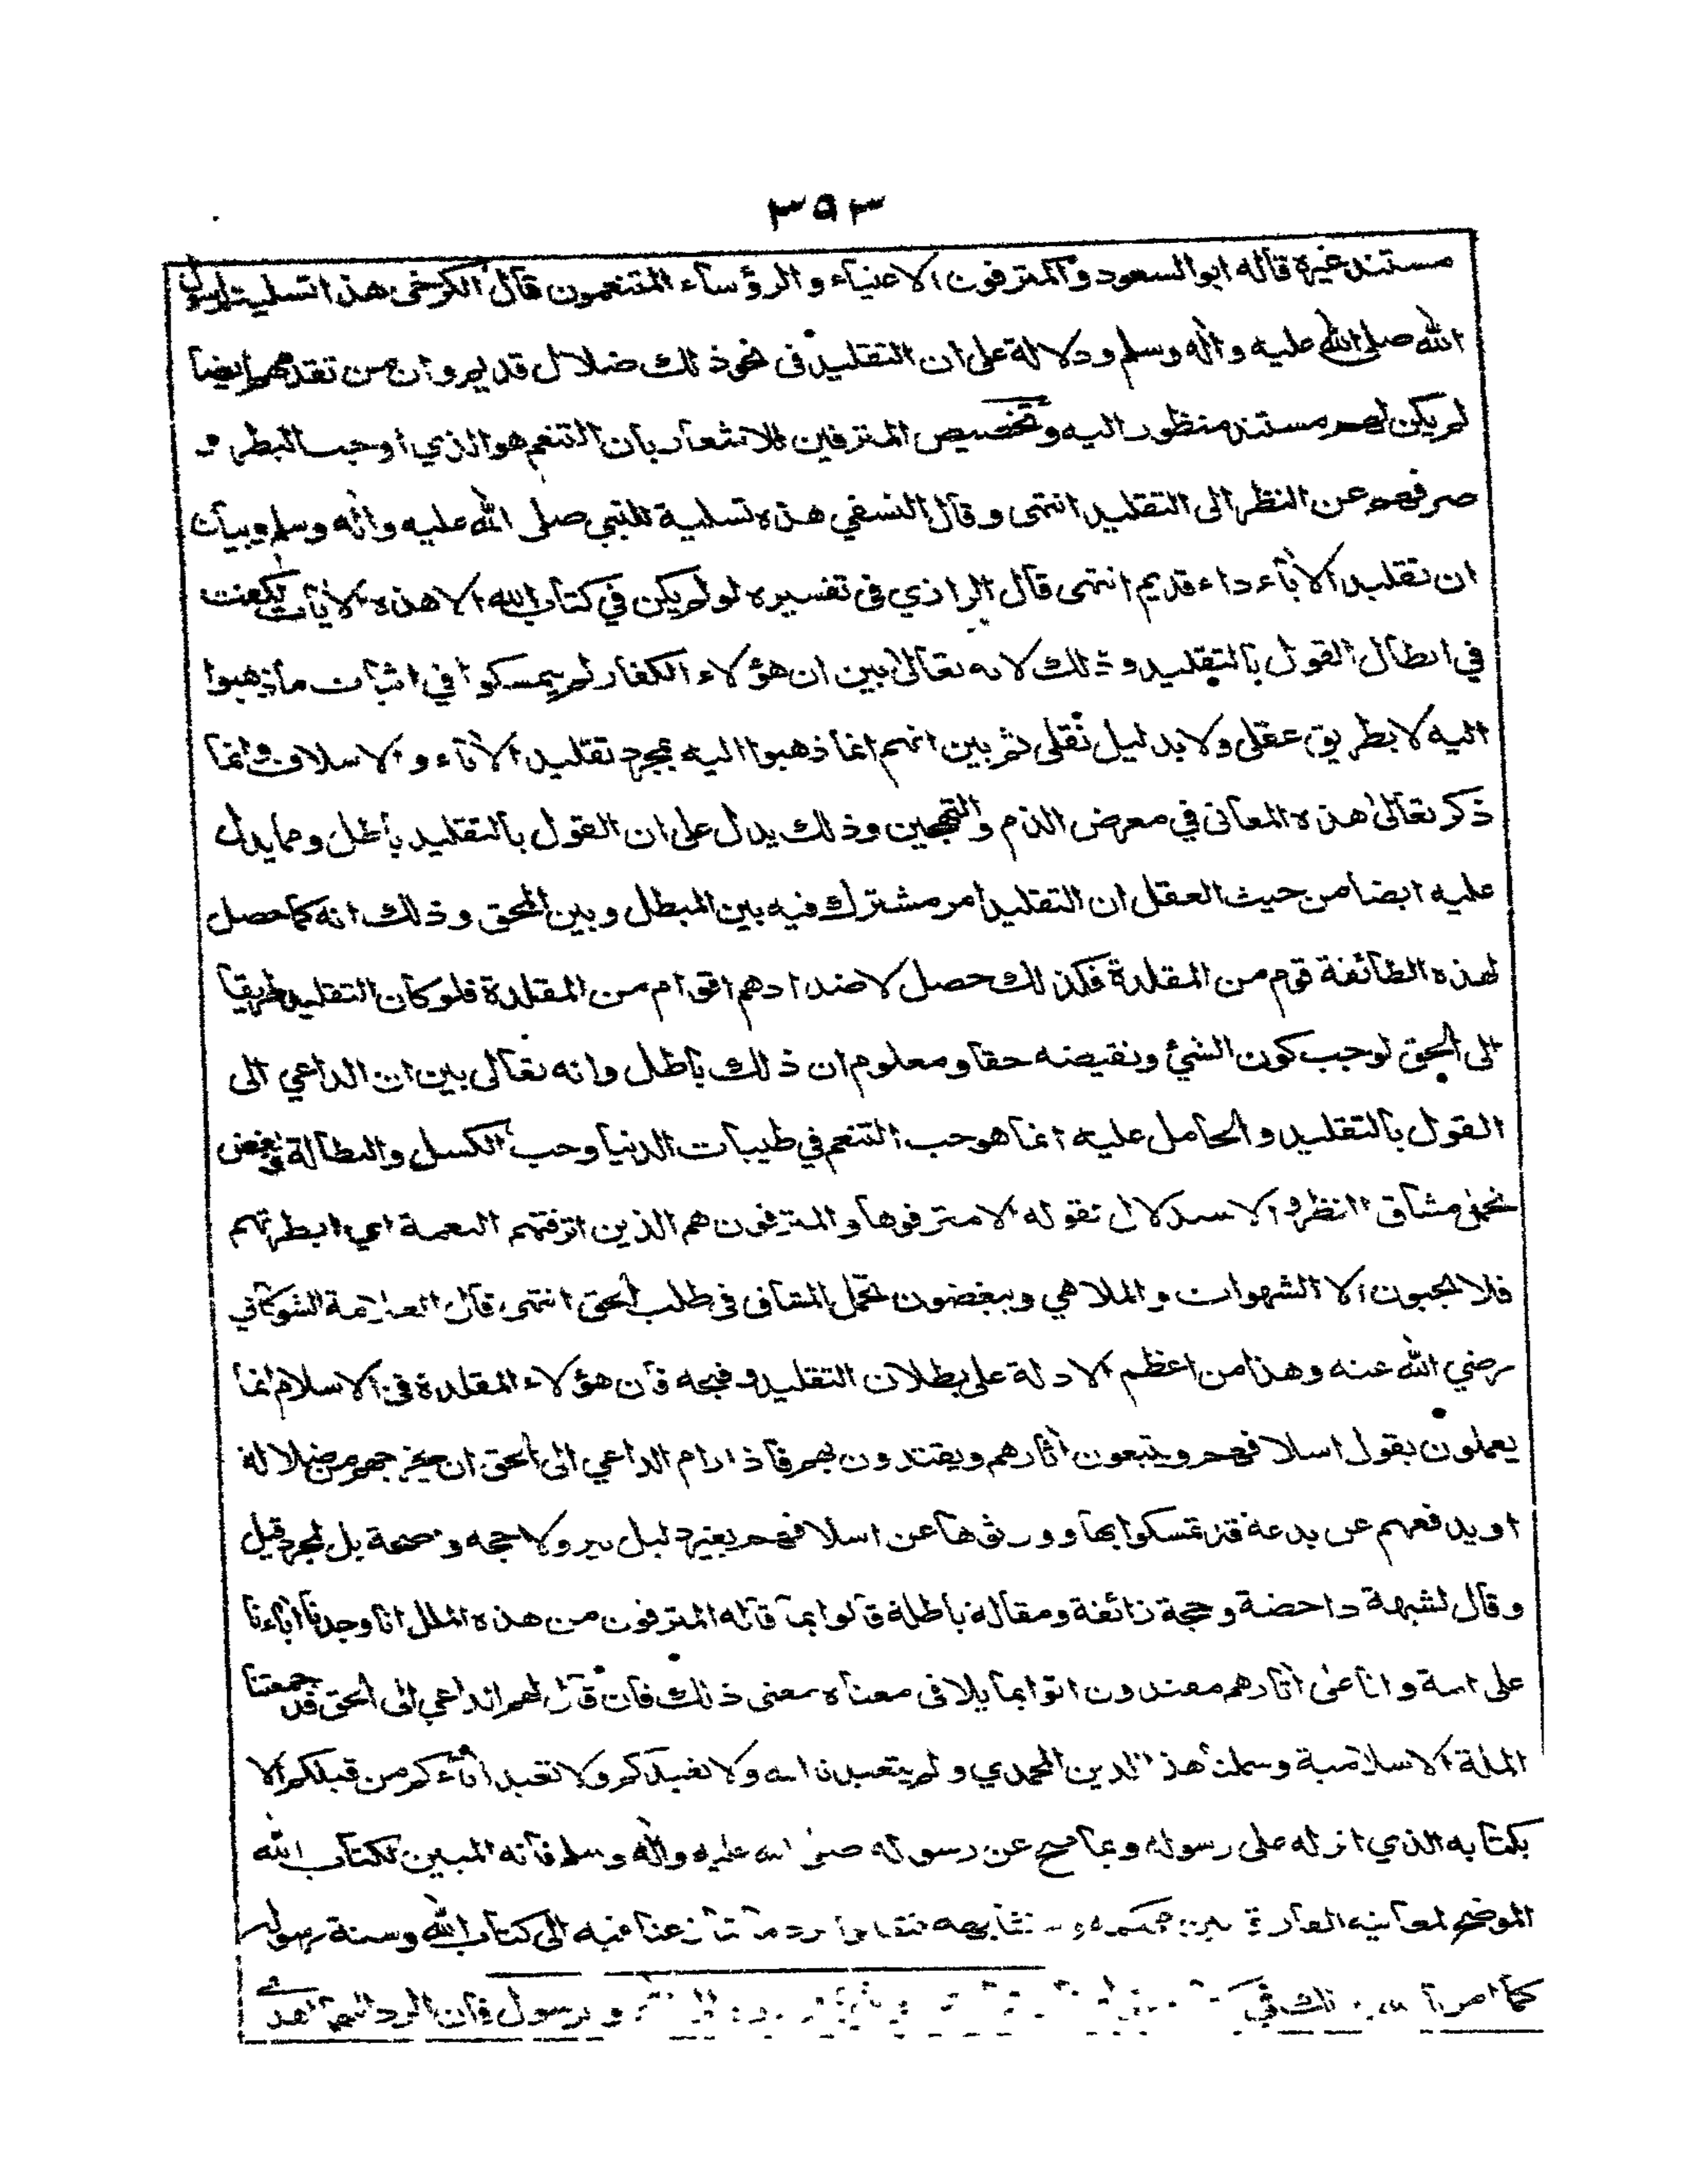 ٣٥٣
مستند غيره قاله ابو السعود والمترفون الاغنياء والرؤساء المتنعمون قال الكرخى هذا تسلية لرسول
الله صلى الله عليه واٰله وسلم ودلالة على ان التقليد فى نحو ذلك ضلال قديم وان من تقدمهم ايضا
لم يكن لهم مستند منظور اليه وتخصيص المترفين للاشعار بان التنعم هو الذي اوجب البطر و
صرفهم عن النظر الى التقليد انتهى وقال النسفي هذه تسلية للنبي صلى الله عليه واٰله وسلم وبيان
ان تقليد الاٰباء داء قديم انتهى قال الرازي فى تفسيره لو لم يكن في كتاب الله الا هذه الاٰيات لكفت
في ابطال القول بالتقليد وذلك لانه تعالى بين ان هؤلاء الكفار لم يتمسكوا في اثبات ما ذهبوا
اليه لا بطريق عقلى ولا بدليل نقلى ثم بين انهم انما ذهبوا اليه بمجرد تقليد الاٰباء والاسلاف وانما
ذكر تعالى هذه المعانى في معرض الذم والتهجين وذلك يدل على ان القول بالتقليد باطل ومما يدل
عليه ايضا من حيث العقل ان التقليد امر مشترك فيه بين المبطل وبين المحق وذلك انه كما حصل
لهذه الطائفة قوم من المقلدة فكذلك حصل لاضدادهم اقوام من المقلدة فلو كان التقليد طريقا
الى الحق لوجب كون الشئ ونقيضه حقا ومعلوم ان ذلك باطل وانه تعالى بين ان الداعي الى
القول بالتقليد والحامل عليه انما هو حب التنعم في طيبات الدنيا وحب الكسل والبطالة وبغض
تحمل مشاق النظر والاستدلال بقوله الا مترفوها والمترفون هم الذين اترفتهم النعمة اي ابطرتهم
فلا يحبون الا الشهوات والملاهي ويبغضون تحمل المشاق فى طلب الحق انتهى قال العلامة الشوكاني
رضي الله عنه وهذا من اعظم الادلة على بطلان التقليد وقبحه فان هؤلاء المقلدة فى الاسلام انما
يعملون بقول اسلافهم ويتبعون اٰثارهم ويقتدون بهم فاذا رام الداعي الى الحق ان يخرجهم من ضلالة
او يدفعهم عن بدعة قد تمسكوا بها وورثوها عن اسلافهم بغير دليل نير ولا حجة واضحة بل لمجرد قيل
وقال لشبهة داحضة وحجة زائفة ومقالة باطلة قالوا بما قاله المترفون من هذه الملل انا وجدنا اٰباءنا
على امة وانا على اٰثارهم مقتدون او بما يلاقى معناه معنى ذلك فان قال لهم الداعي الى الحق قد جمعتنا
الملة الاسلامية وشملنا هذا الدين المحمدي ولم يتعبدنا الله ولا تعبدكم ولا تعبد اٰباءكم من قبلكم الا
بكتابه الذي انزله على رسوله وبما صح عن رسوله صلى الله عليه واٰله وسلم فانه المبين لكتاب الله
الموضح لمعانيه الفارق بين محكمه و متشابهه فتعالوا نرد ما تنازعنا فيه الى كتاب الله وسنة رسوله
كما امرنا الله بذلك في والرسول فان الرد اليهما اهدى